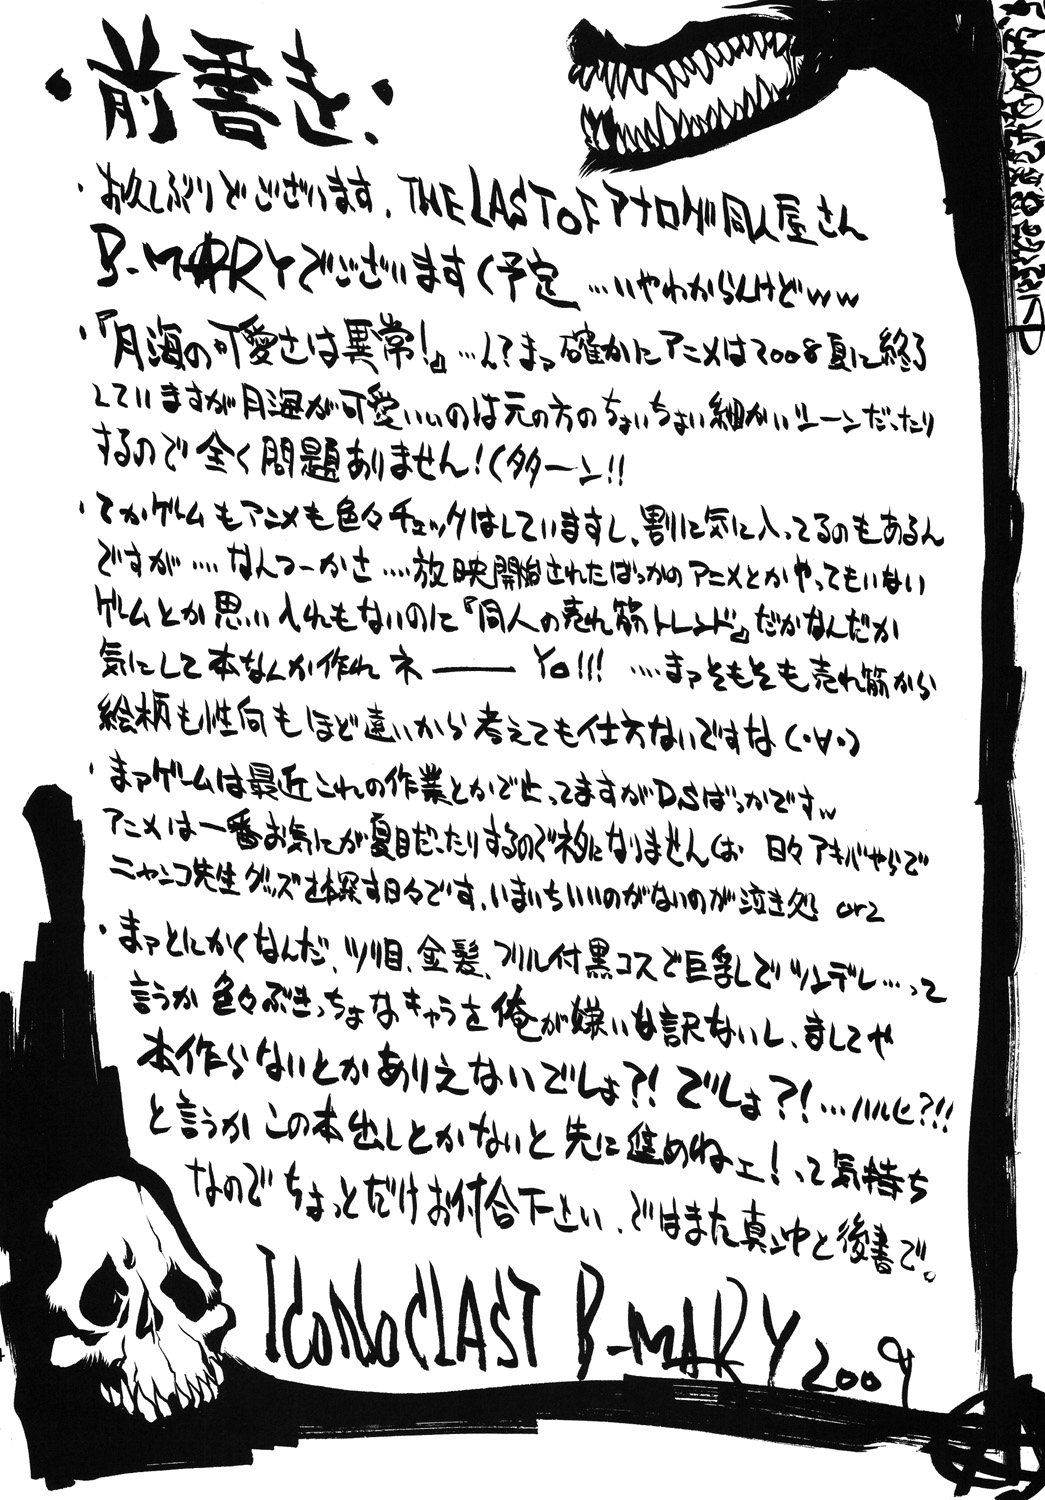 ・前書き・
・お久しぶりでございます、THE LAST OF アナログ同人屋さん
B-MARYでございます（予定 …いやわからんけどww
・『月海の可愛さは異常！』…ん？まァ確かにアニメは2008夏に終了
していますが月海が可愛いいのは元の方のちょいちょい細かいシーンだったり
するので全く問題ありません！（タターン!!
・てかゲームもアニメも色々チェックはしていますし、割に気に入ってるのもあるん
ですが‥‥なんつーかさ‥‥放映開始されたばっかのアニメとかやってもいない
ゲームとか思い入れもないのに『同人の売れ筋トレンド』だかなんだか
気にして本なんか作れネ――Yo!!! ‥‥まァそもそも売れ筋から
絵柄も性向もほど遠いから考えても仕方ないですな（・∀・）
・まァゲームは最近これの作業とかで止ってますがDSばっかですw
アニメは一番お気にが夏目だったりするのでネタになりませんしな 日々アキバやらで
ニャンコ先生グッズを探す日々です、いまいちいいのがないのが泣き処 orz
・まァとにかくなんだ、ツリ目、金髪、フリル付黒コスで巨乳でツンデレ…って
言うか色々ぶきっちょなキャラを俺が嫌いな訳ないし、ましてや
本作らないとかありえないでしょ?! でしょ?!…ハルヒ?!!
と言うかこの本出しとかないと先に進めねェ！って気持ち
なのでちょっとだけお付合下さい、ではまた真ン中と後書で。
ICONOCLAST B-MARY 2009